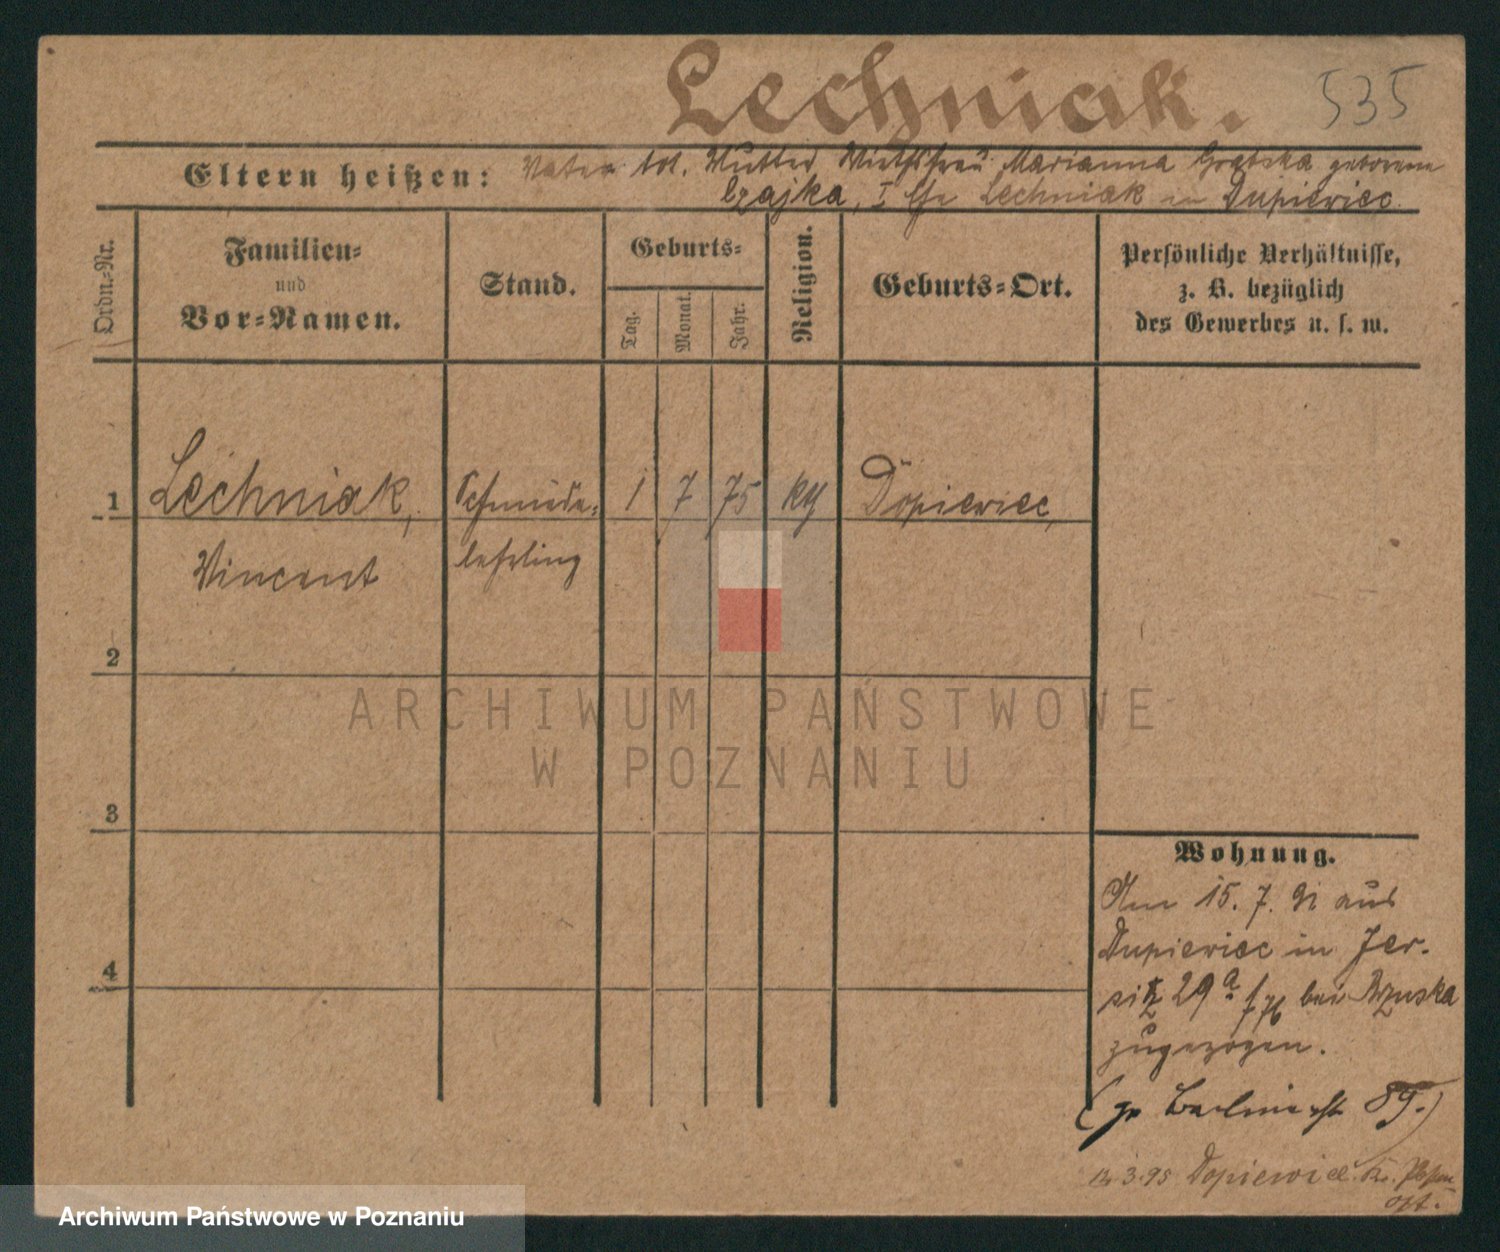 Lechniak. 535
Eltern heißen: Vater tot. Mutter Wirthsfrau Marianna geborene
Czajka, I Ehe Lechniak in Dupiewiec
Ordn.-Nr.
Familien-
und
Vor-Namen.
Stand.
Geburts-
Tag.
Monat.
Jahr.
Religion.
Geburts-Ort.
Persönliche Verhältnisse,
z. B. bezüglich
des Gewerbes u. s. w.
1 Lechniak, Schmiede- 1 7 75 Dopiewiec,
Vincent lehrling
2
3
4
Wohnung.
Am 15. 7. 91 aus
Dupiewiec in Jer-
sitz 29a bei
zugezogen.
(gr Berliner str 89.)
3.95 Dopiewiec Kr. Posen
Ost.
ARCHIWUM PAŃSTWOWE
W POZNANIU
Archiwum Państwowe w Poznaniu